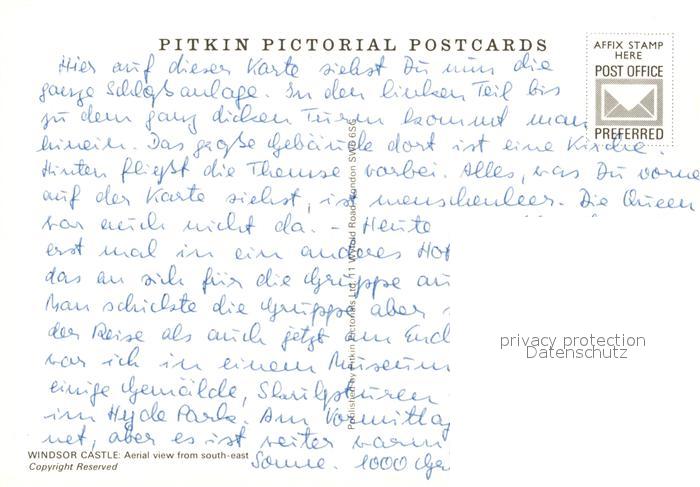 PITKIN PICTORIAL POSTCARDS
AFFIX STAMP
HERE
POST OFFICE
PREFERRED
Hier auf dieser Karte siehst Du nun die
ganze Schloßanlage. In den linken Teil bis
zu dem ganz dicken Turm kommt man
hinein. Das große Gebäude dort ist eine Kirche.
Hinten fließt die Themse vorbei. Alles, was Du vorne
auf der Karte siehst, ist menschenleer. Die Queen
war auch nicht da. – Heute
erst mal in ein anderes Hot
das an sich für die Gruppe
Man schickte die Gruppe aber
der Reise als auch jetzt am End
war ich in einem Museum
einige Gemälde, Skulpturen
im Hyde Park. Am Vormittag
net, aber es ist weiter warm
Sonne. 1000
Published by Pitkin Pictorials Ltd, 11 Wyfold Road, London SW6 6SG
privacy protection
Datenschutz
WINDSOR CASTLE: Aerial view from south-east
Copyright Reserved